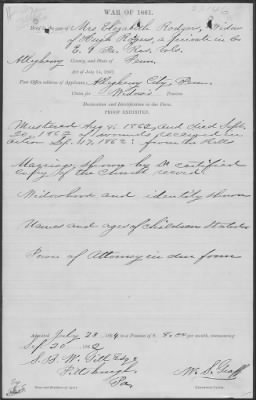 WAR OF 1861.
Mrs Elizabeth Rodgers, Widow
of Hugh Rodgers, a private in Co
E. 9 Pa. Res. Vols.
Allegheny County, and State of Penn.
Act of July 14, 1862.
Post Office address of Applicant, Allegheny City, Penn.
Claim for Widow's Pension
Declaration and Identification in Due Form.
PROOF EXHIBITED.
Mustered Aug 8, 1862, and died Sept.
20, 1862 of wounds received in
action Sep. 17, 1862: from the Rolls
Marriage shown by a certified
copy of the Church record.
Widowhood and identity shown
Names and ages of children stated
Power of Attorney in due form
Admitted July 28, 1864 to a Pension of $ 8.00 per month, commencing
Sep 20 1862
Pittsburgh,
Pa
Name and Residence of Agent.
Examining Clerk.